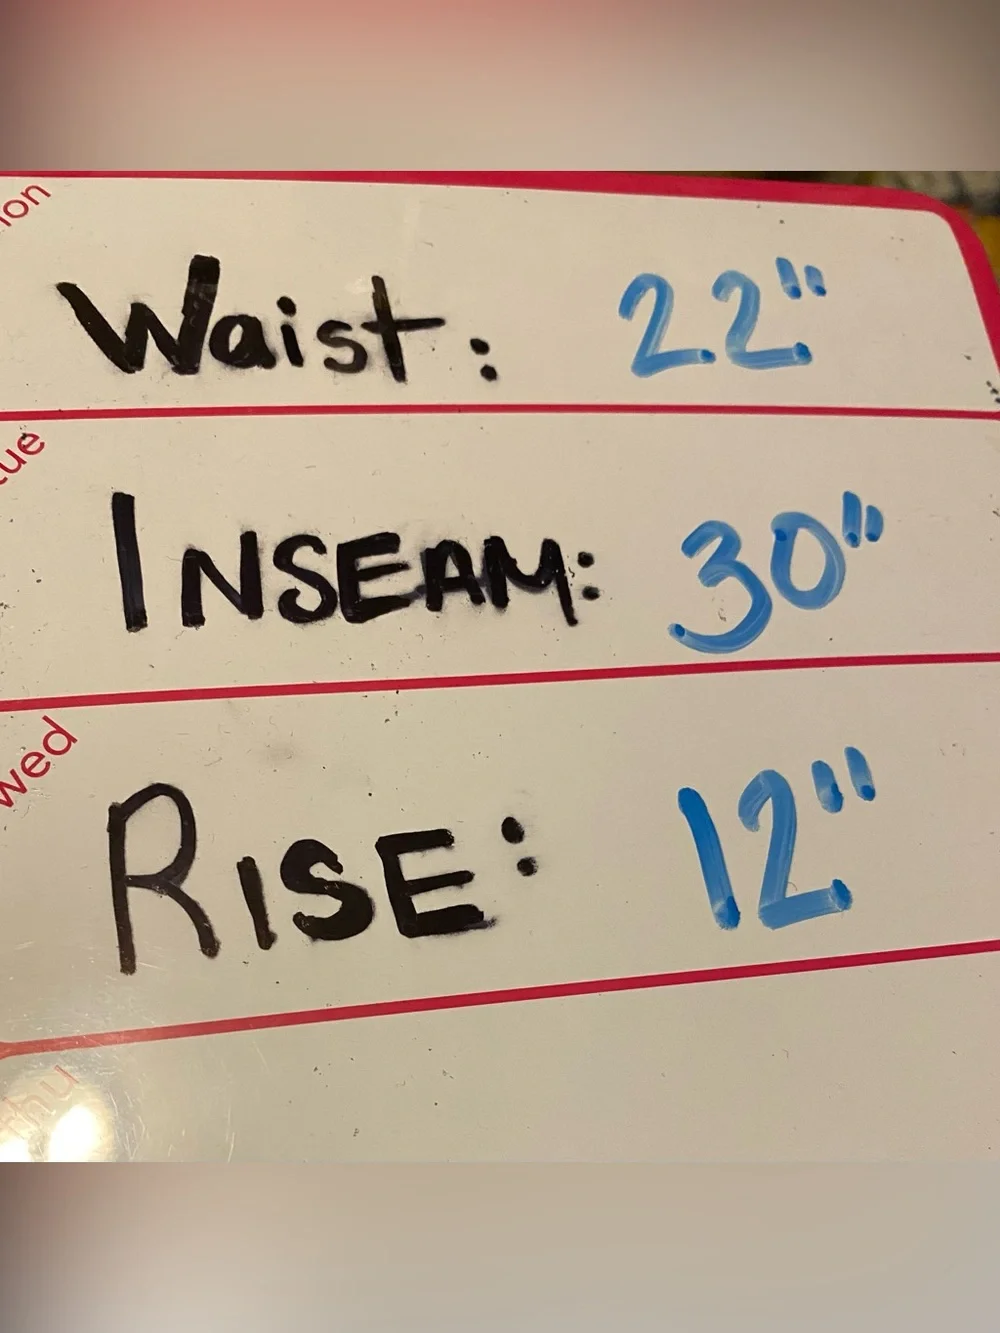 Waist: 22"
tue
INSEAM: 30"
wed
RISE: 12"
thu